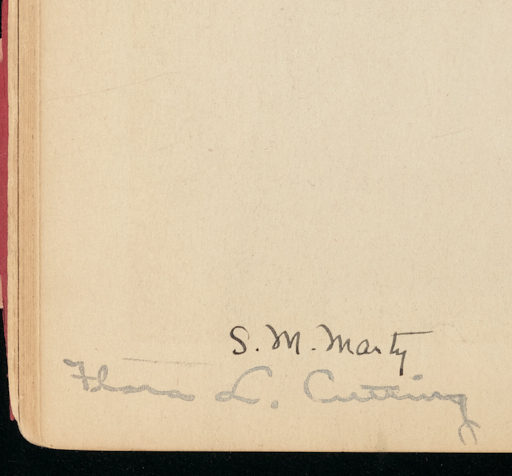 S. M. Marty
Flora L. Cutting